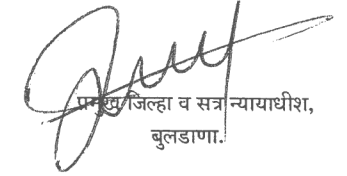 प्रमुख जिल्हा व सत्र न्यायाधीश,
बुलडाणा.